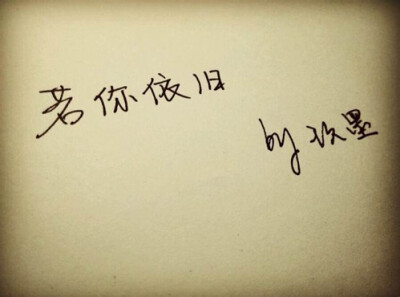 若你依旧
by 玖墨